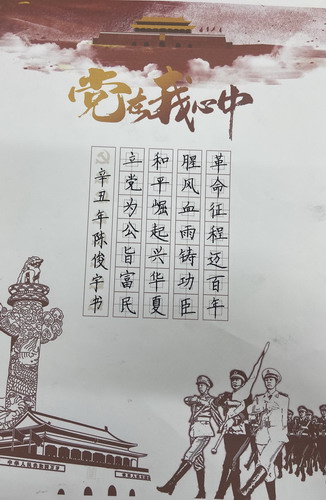 党在我心中
革命征程迈百年
腥风血雨铸功臣
和平崛起兴华夏
立党为公旨富民
辛丑年陈俊宇书